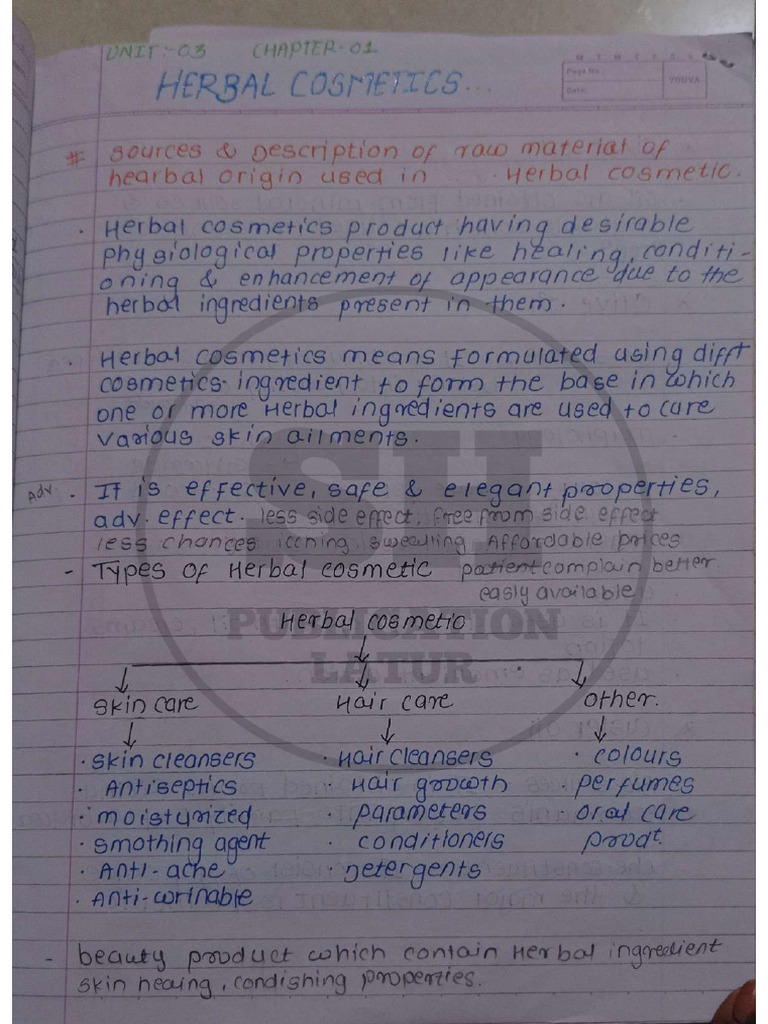 UNIT:-03 CHAPTER-01
HERBAL COSMETICS...
M T W T F S S
Page No.:
Date:
YOUVA
# sources & Description of raw material of
hearbal origin used in Herbal cosmetic.
· Herbal cosmetics product having desirable
physiological properties like healing, conditi-
oning & enhancement of appearance due to the
herbal ingredients present in them.
· Herbal cosmetics means formulated using difft
cosmetics ingredient to form the base in which
one or more Herbal ingredients are used to cure
various skin ailments.
Adv. · It is effective, safe & elegant properties,
adv. effect. less side effect, free from side effect
less chances iccning, sweelling Affordable prices
- Types of Herbal cosmetic patient complain better
easly available
Herbal cosmetic
skin care Hair care other.
· skin cleansers · Hair cleansers · colours
· Antiseptics · Hair growth · perfumes
· moisturized · parameters · oral care
· smothing agent · conditioners prodt.
· Anti-ache · Detergents
· Anti-wrinable
- beauty product which contain Herbal ingredient
skin heaing, condishing properties.
SII
PUBLICATION
LATUR